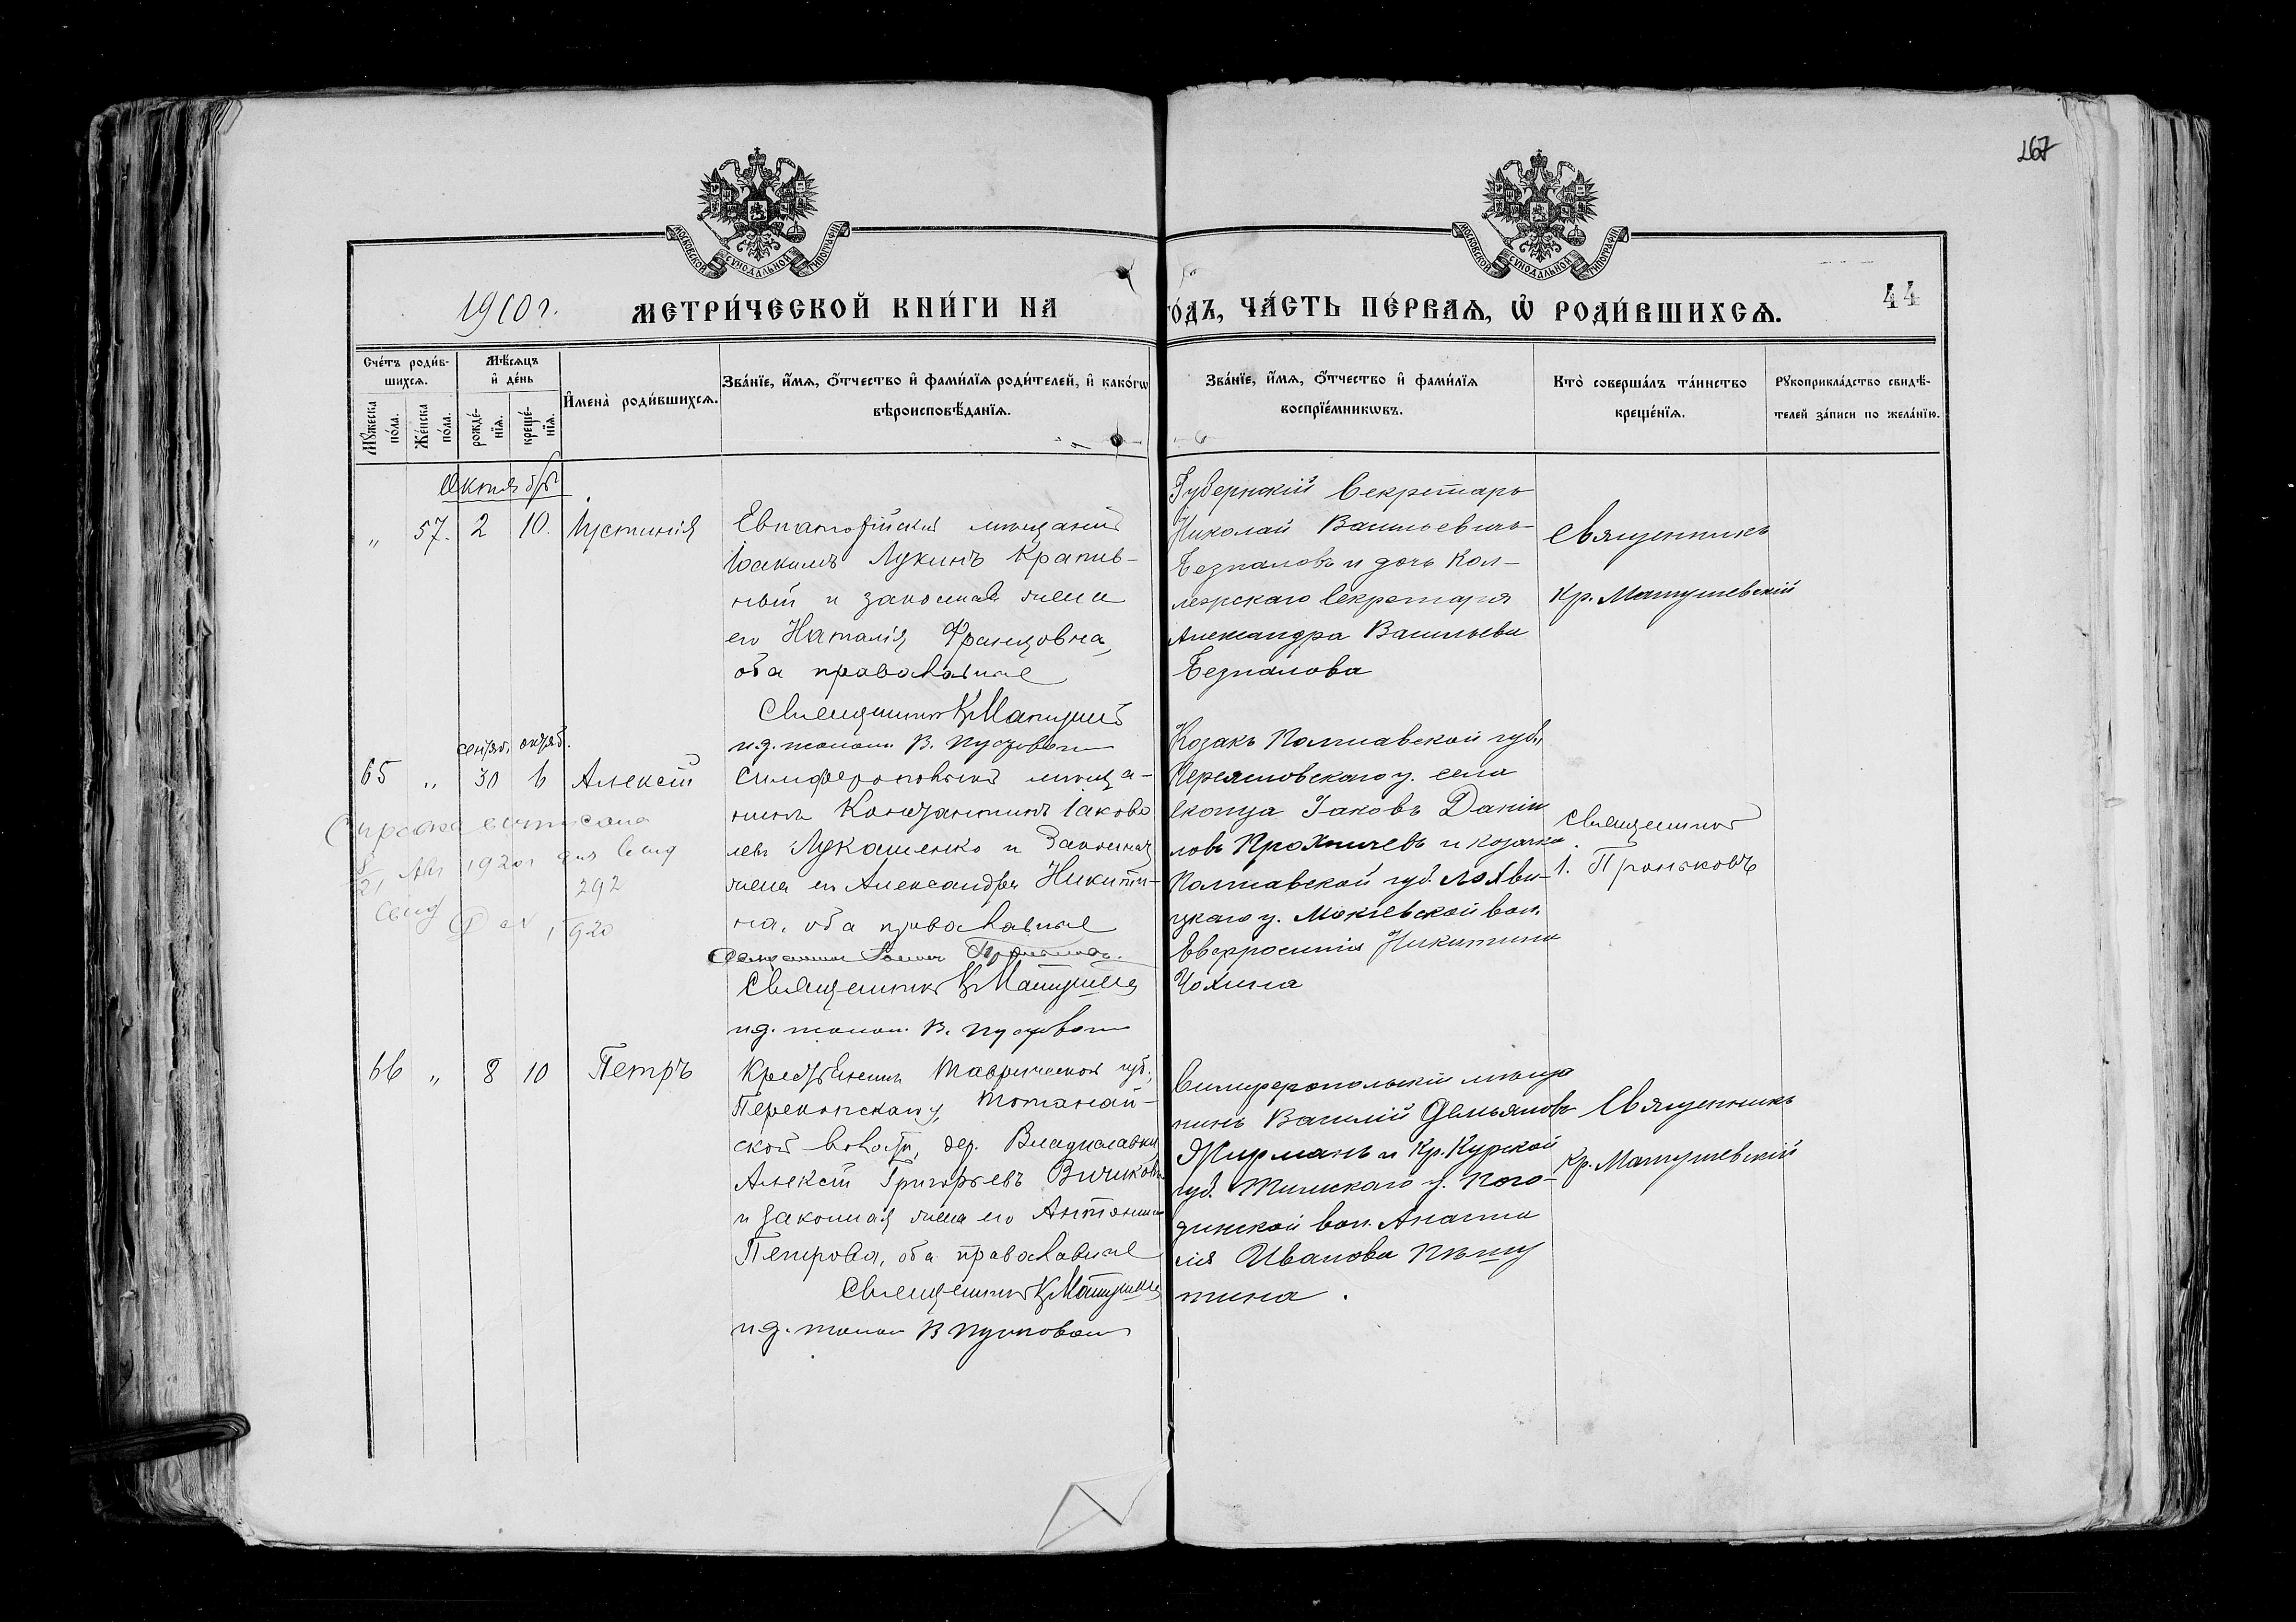 267
МОСКОВСКОЙ СѴНОДАЛЬНОЙ ТИПОГРАФІИ
МОСКОВСКОЙ СѴНОДАЛЬНОЙ ТИПОГРАФІИ
1910 г. МЕТРИ́ЧЕСКОЙ КНИ́ГИ НА ГО́ДЪ, ЧА́СТЬ ПЕ́РВАѦ, Ѡ҆ РОДИ́ВШИХСѦ. 44
Сче́тъ роди́в-
шихсѧ.
Мꙋ́жеска по́ла.
Же́нска по́ла.
Мѣ́сѧцъ
и҆ де́нь
рожде́-
нїѧ.
креще́-
нїѧ.
И҆мена̀ роди́вшихсѧ.
Зва́нїе, и҆́мѧ, о҆́тчество и҆ фами́лїѧ роди́телей, и҆ како́гѡ
вѣроисповѣ́данїѧ.
Зва́нїе, и҆́мѧ, о҆́тчество и҆ фами́лїѧ
воспрїе́мникѡвъ.
Кто̀ соверша́лъ та́инство
креще́нїѧ.
Рꙋкоприкла́дство свидѣ́-
телей за́писи по жела́нїю.
Октябрь
„ 57. 2 10. Іустинія
Евпаторійскій мѣщанинъ
Іоакимъ Лукинъ Крапив-
ный и законная жена
его Наталія Францовна,
оба православные
Священникъ К Матушев
и.д. псалом. В. Пустовой
Губернскій Секретарь
Николай Васильевичъ
Безпаловъ и дочь Кол-
лежскаго Секретаря
Александра Васильева
Безпалова
Священникъ
Кр. Матушевскій
сентяб. октяб.
65 „ 30 6 Алексій
Симферопольскій мѣща-
нинъ Константинъ Іаков
левъ Лукашенко и Законная
жена его Александра Никити-
на, оба православные
Священникъ К Матушев
и.д. псалом. В. Пустовой
Справка
1920
292
1920
Козакъ Полтавской губ.,
у. села
Іаковъ Даніи
ловъ и козачка
Полтавской губ. Лохви-
цкаго у. вол.
Евфросинія Никитина
Чохина
Священникъ
І. Проньковъ
66 „ 8 10 Петръ
Крестьянинъ Таврической губ.,
Перекопскаго у,
ской волости, дер. Владиславки
Алексій Григорьевъ
и законная жена его Антонина
Петрова, оба православные
Священникъ К Матушев
и.д. псалом В Пустовой
Симферопольскій мѣща
нинъ Василій Демьяновъ
и Кр. Курской
губ. Тимскаго у. Пого-
жинской вол. Анато
лія Иванова
тина.
Священникъ
Кр. Матушевскій